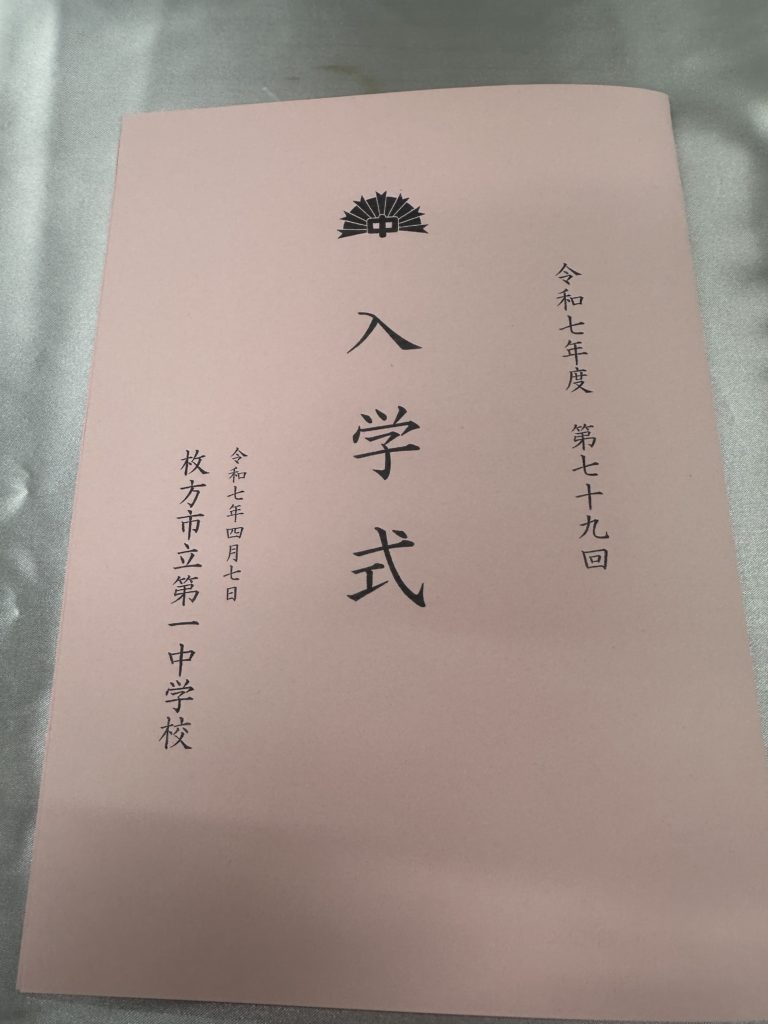 令和七年度　第七十九回
中
入学式
令和七年四月七日
枚方市立第一中学校